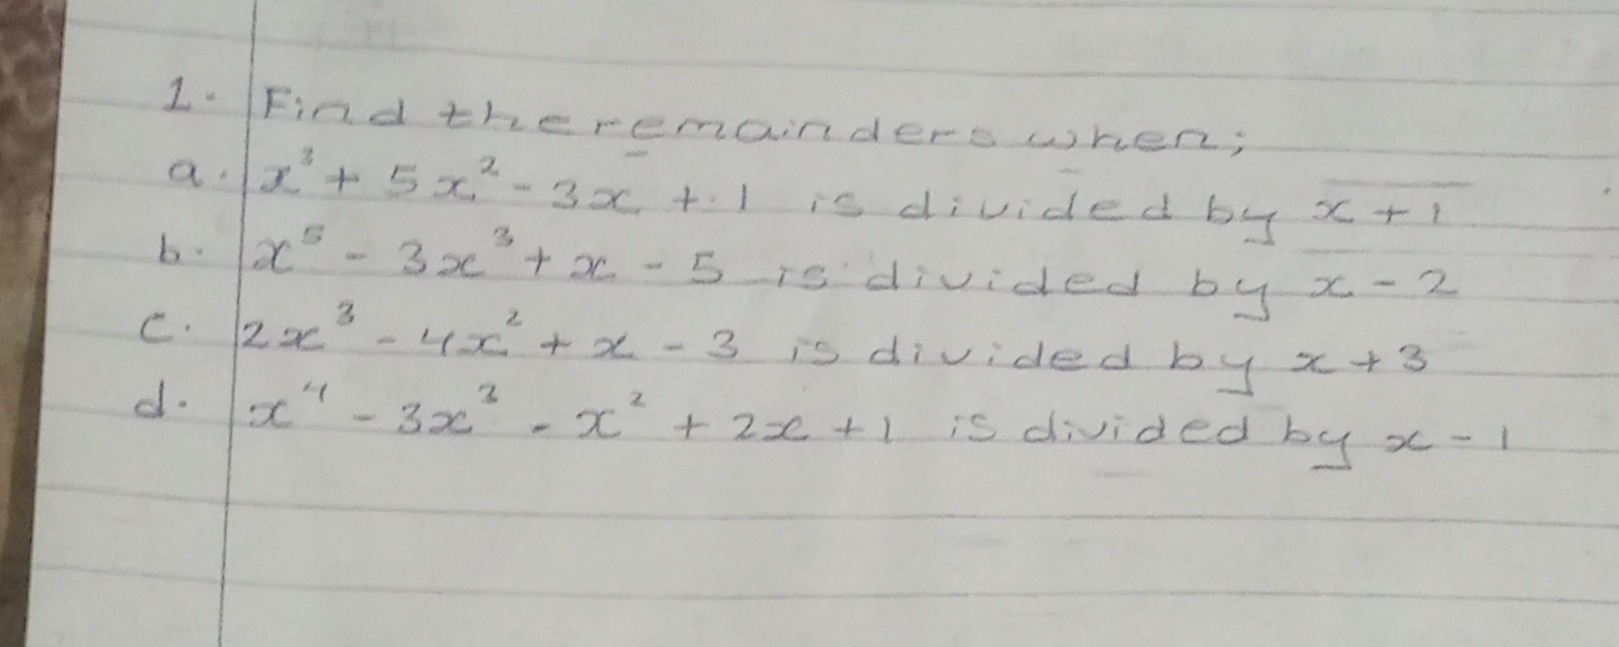 1. Find the remainders when;
a. x³ + 5x² - 3x + 1 is divided by x + 1
b. x⁵ - 3x³ + x - 5 is divided by x - 2
c. 2x³ - 4x² + x - 3 is divided by x + 3
d. x⁴ - 3x³ - x² + 2x + 1 is divided by x - 1